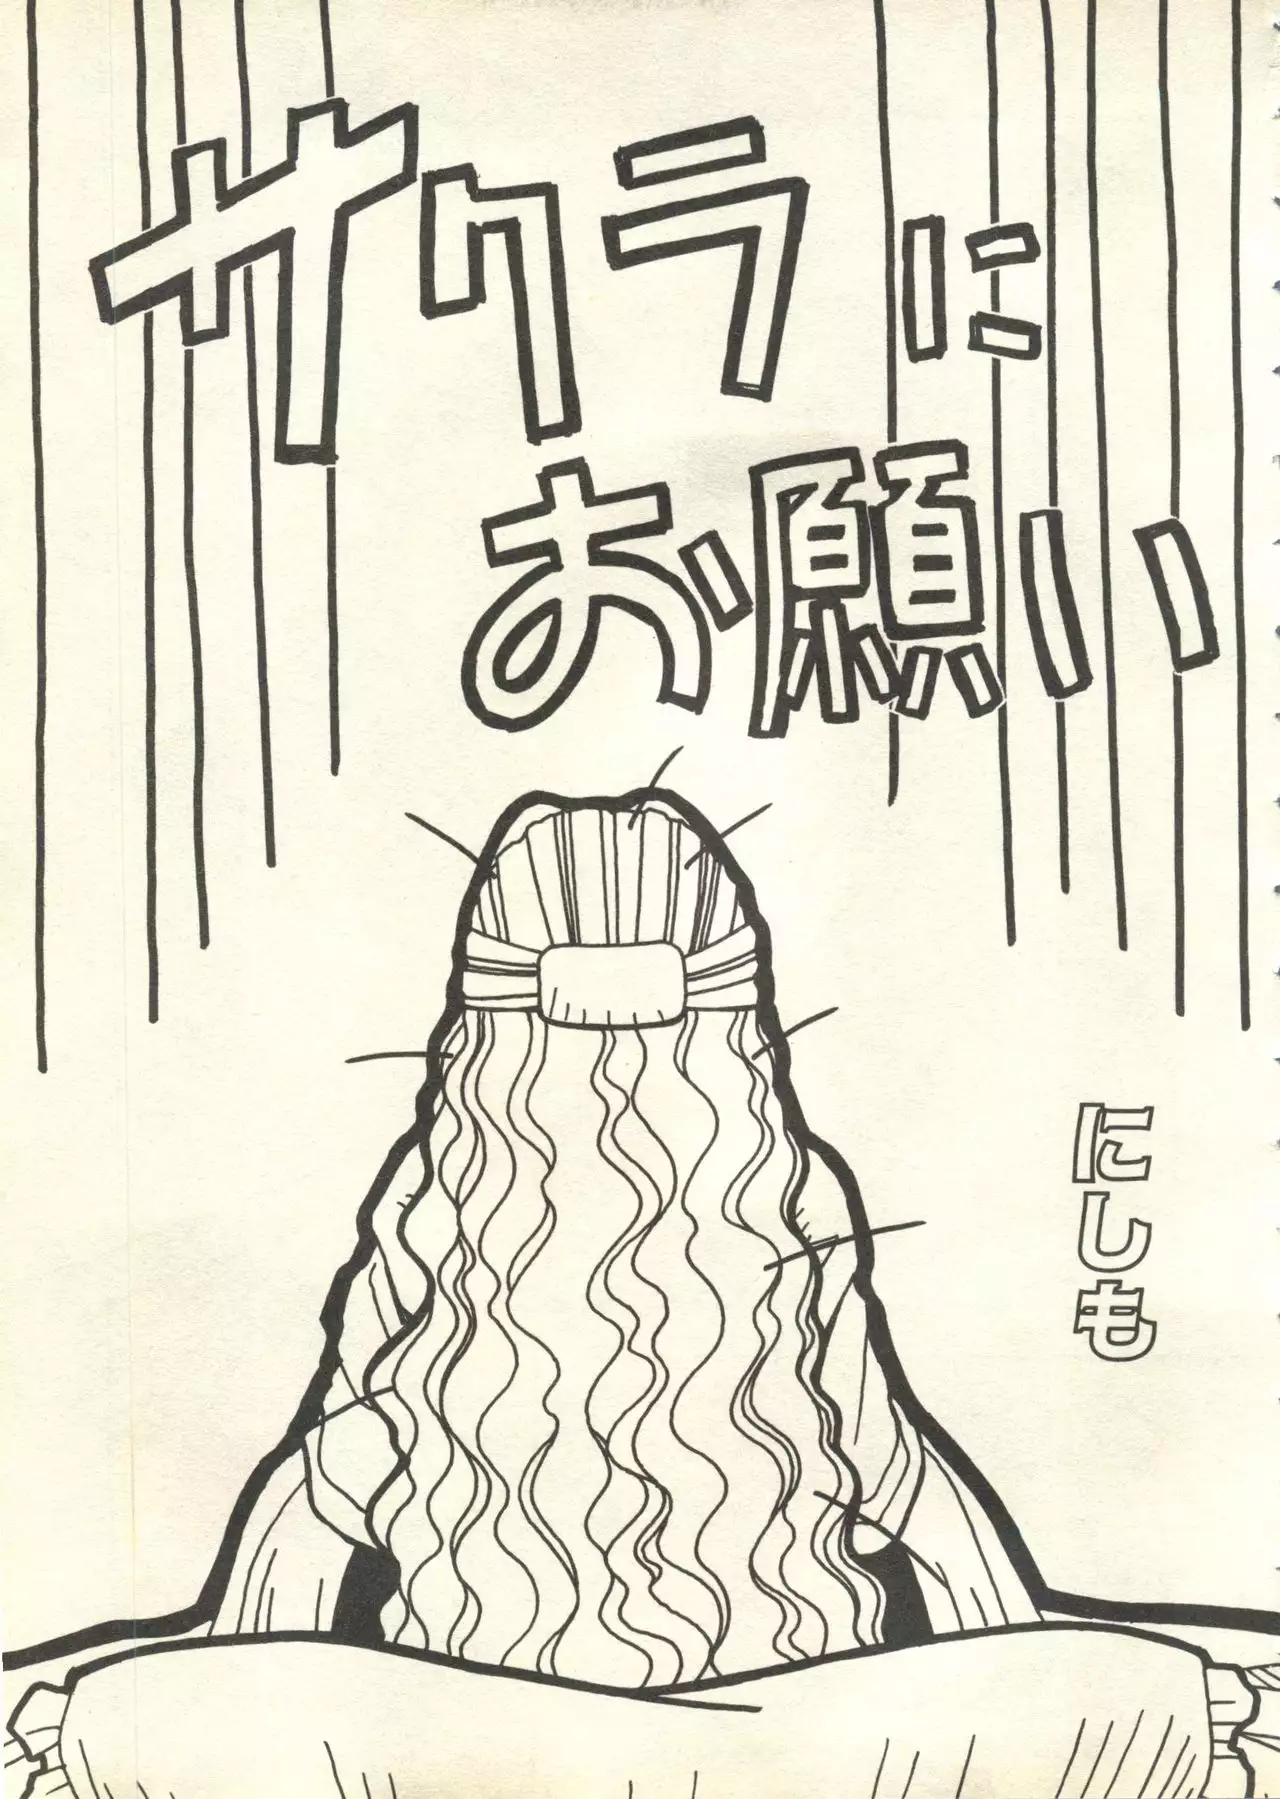 サクラに
お願い
にしも